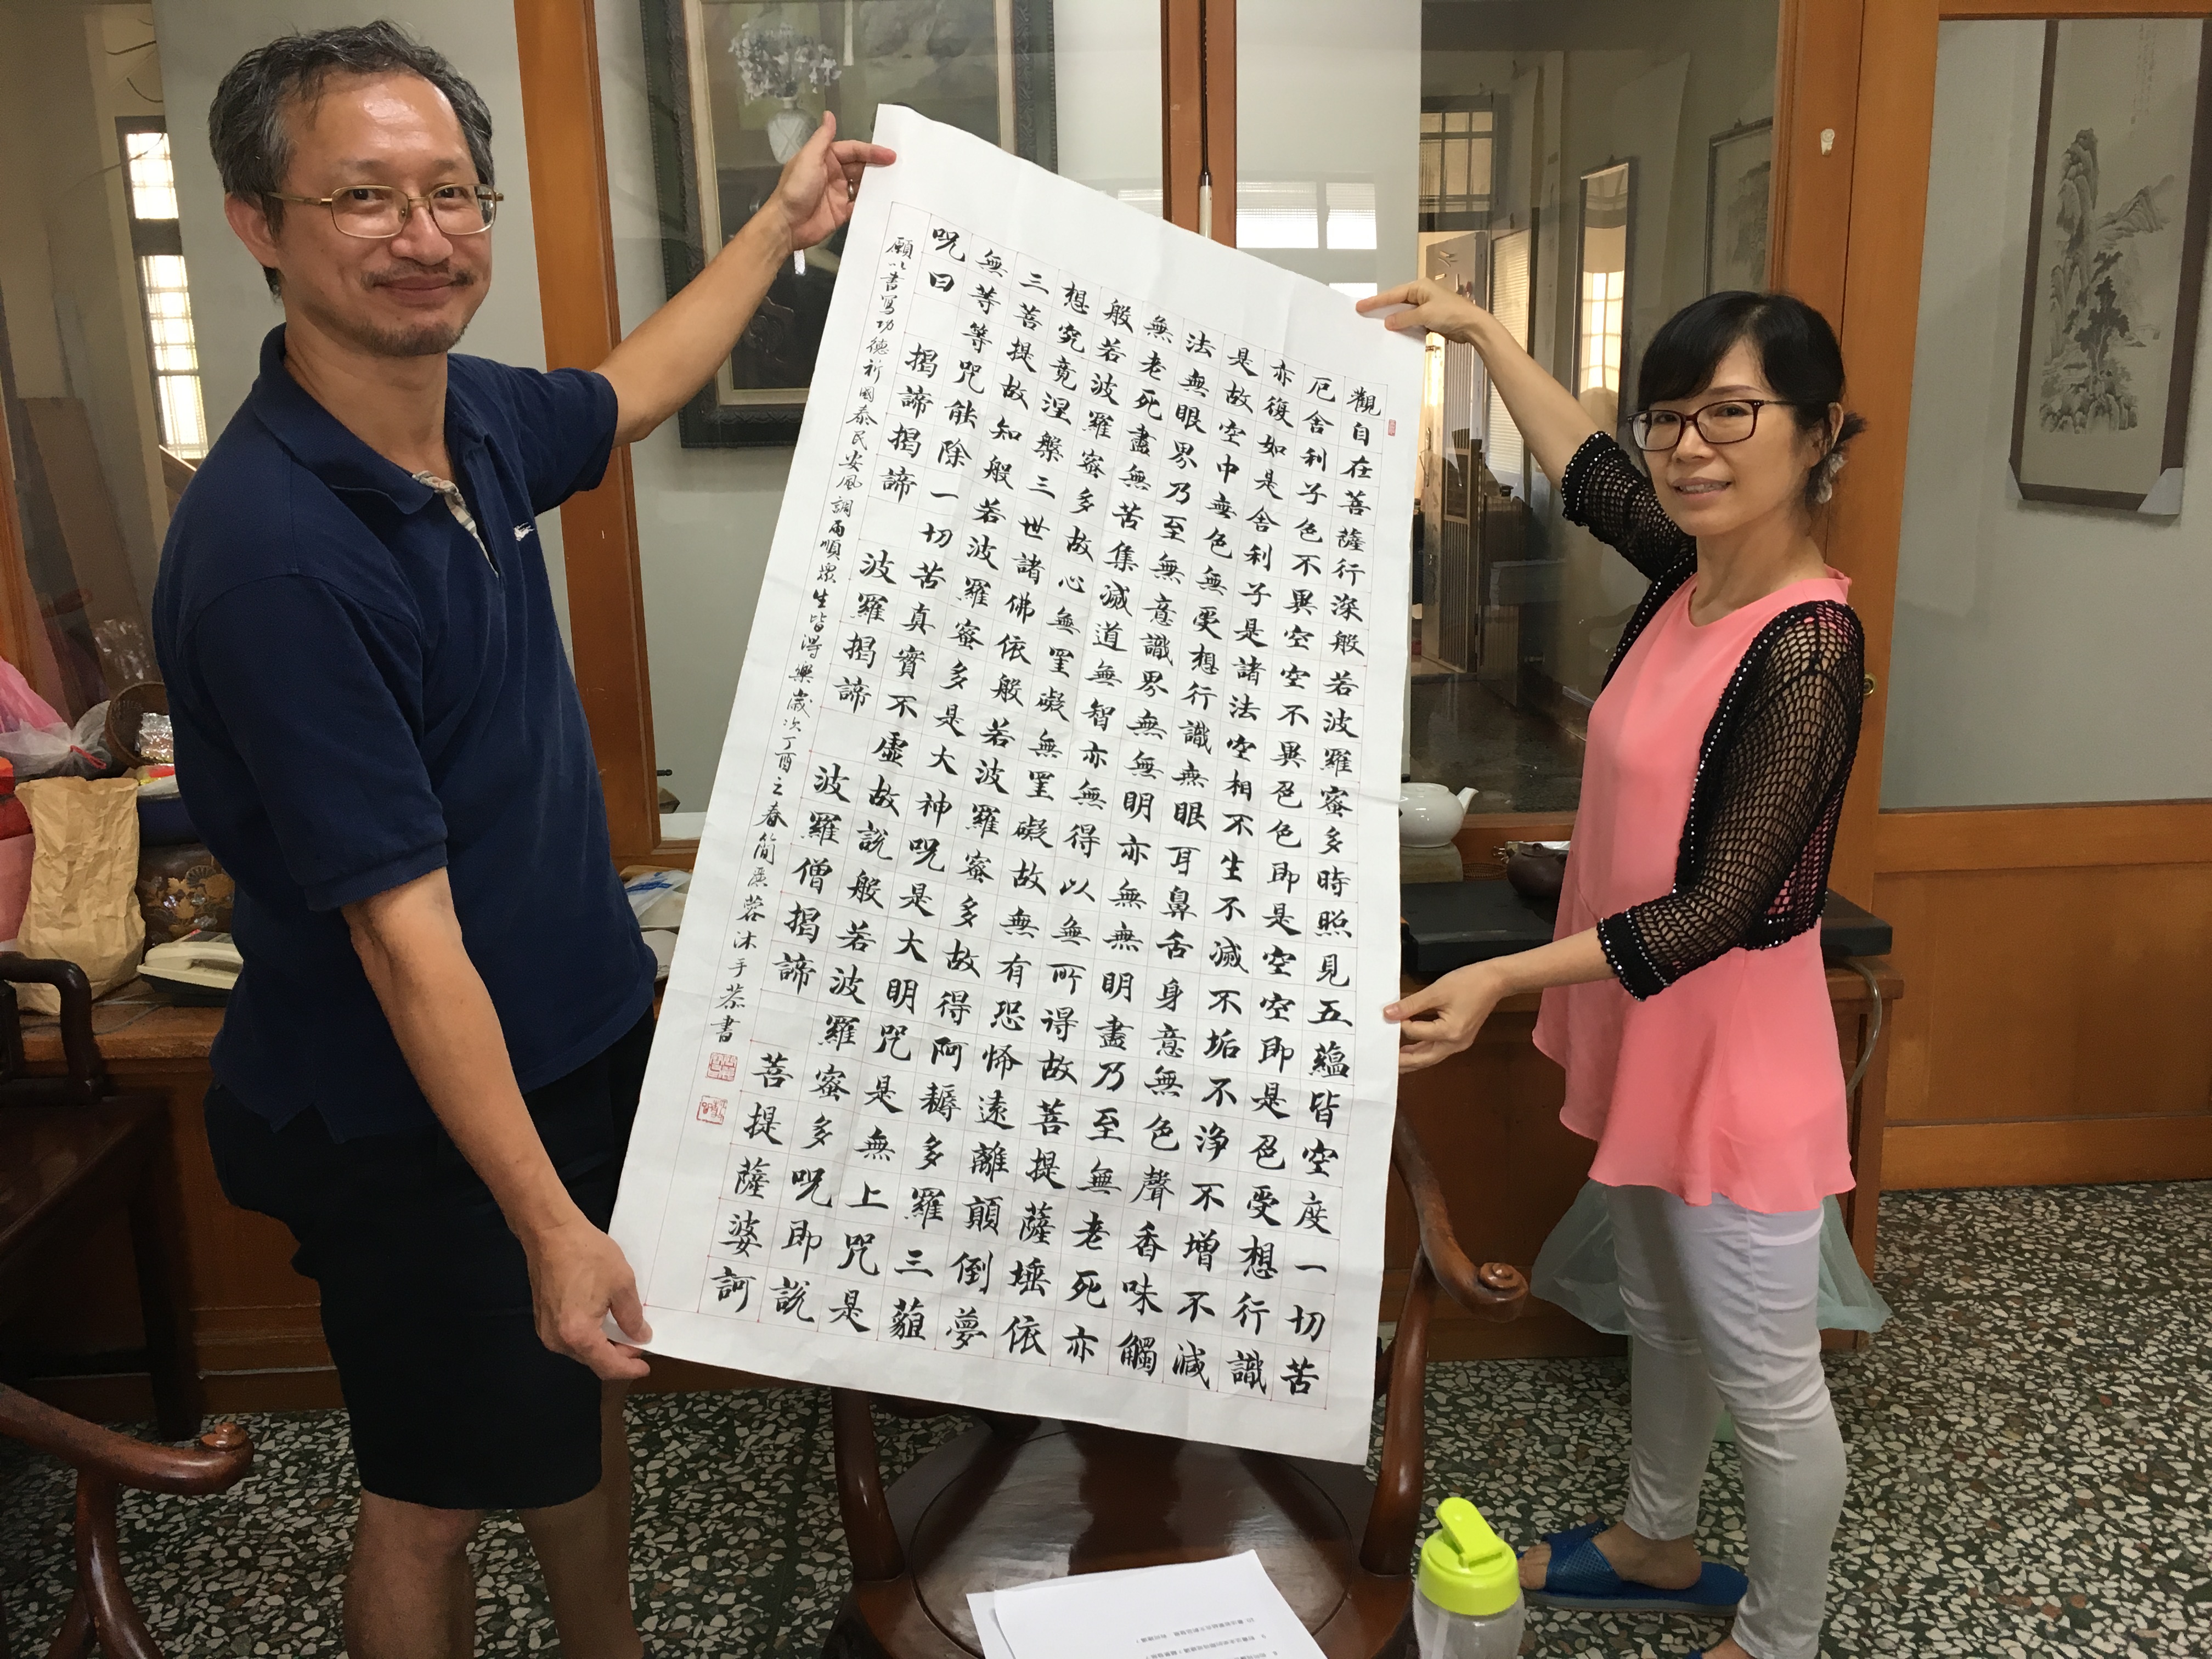 觀自在菩薩行深般若波羅蜜多時照見五蘊皆空度一切苦
厄舍利子色不異空空不異色色即是空空即是色受想行識
亦復如是舍利子是諸法空相不生不滅不垢不淨不增不減
是故空中無色無受想行識無眼耳鼻舌身意無色聲香味觸
法無眼界乃至無意識界無無明亦無無明盡乃至無老死亦
無老死盡無苦集滅道無智亦無得以無所得故菩提薩埵依
般若波羅蜜多故心無罣礙無罣礙故無有恐怖遠離顛倒夢
想究竟涅槃三世諸佛依般若波羅蜜多故得阿耨多羅三藐
三菩提故知般若波羅蜜多是大神呪是大明咒是無上咒是
無等等咒能除一切苦真實不虛故說般若波羅蜜多呪即說
呪曰 揭諦揭諦 波羅揭諦 波羅僧揭諦 菩提薩婆訶
願以書寫功德祈國泰民安風調雨順眾生皆得樂歲次丁酉之春簡廉蓉沐手恭書